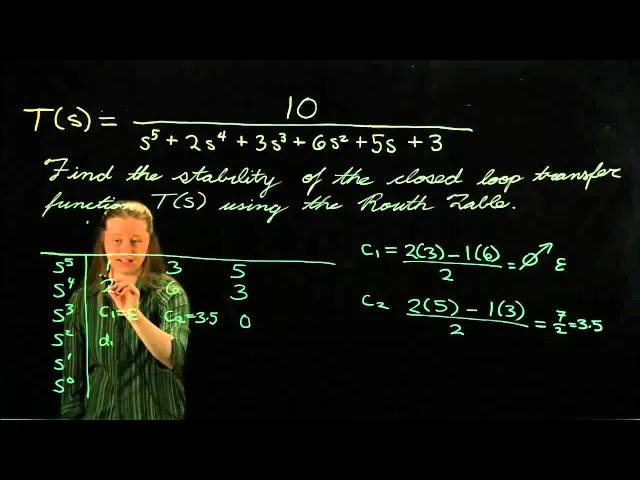 T(s) = 10 / s⁵ + 2s⁴ + 3s³ + 6s² + 5s + 3
Find the stability of the closed loop transfer
function T(s) using the Routh Table.
s⁵ 1 3 5
s⁴ 2 6 3
s³ C₁=ε C₂=3.5 0
s² d₁
s¹
s⁰
C₁ = 2(3) - 1(6) / 2 = 0 ε
C₂ 2(5) - 1(3) / 2 = 7/2 = 3.5